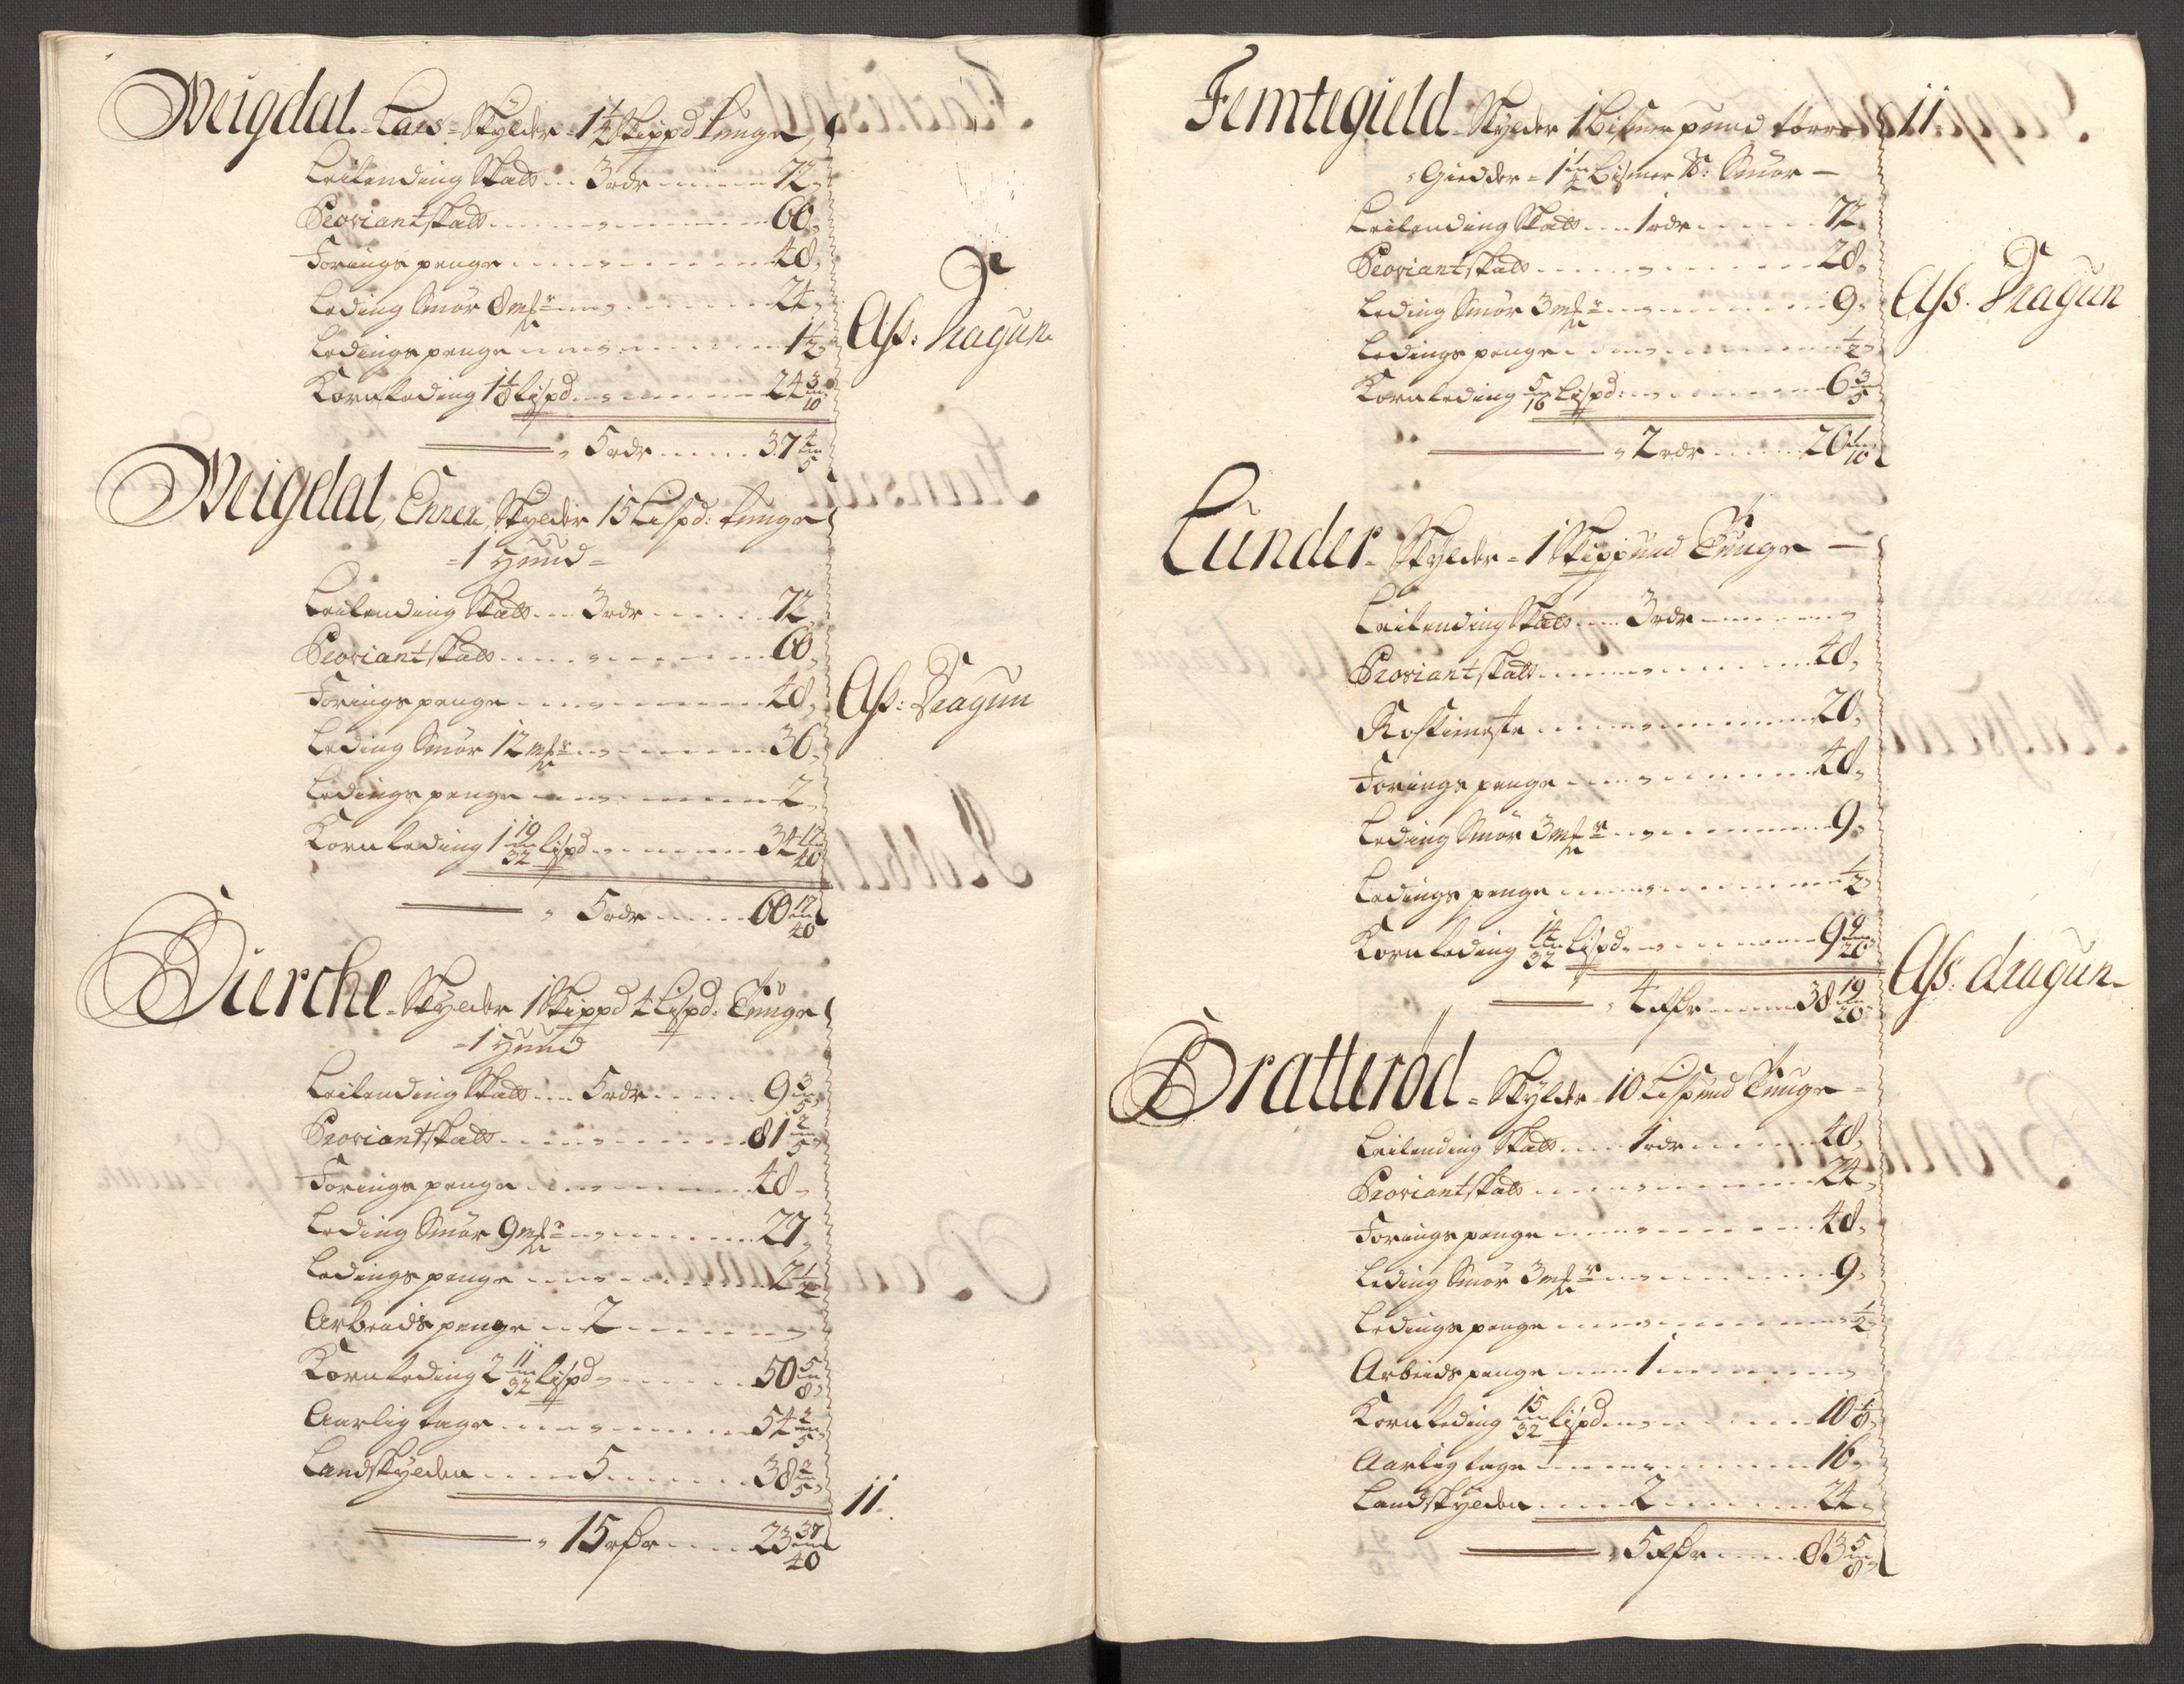 Meigdal. Lars. Skylder 1 1/2 Skippd Tunge
Leilending Skatt 3 rdr 72,
Proviantskatt 60,
Forings penge 48,
Leding Smör 8 mkr 24,
Ledings penge 1 1/2,
Kornleding 1 1/8 Lispd 24 3/10
5 rdr 37 4/5
Ass: Dragun
Meigdal, Ennen, Skylder 15 Lispd: Tunge
1 Huud
Leilending Skatt 3 rdr 72,
Proviantskatt 60,
Forings penge 48,
Leding Smör 12 mkr 36,
Ledings penge 2,
Kornleding 1 19/32 Lispd 34 17/40
5 rdr 60 17/40
Ass: Dragun
Bierche. Skylder 1 Skippd 4 Lispd. Tunge
1 Huud
Leilending Skatt 5 rdr 9 3/5,
Proviantskatt 81 2/5,
Forings penge 48,
Leding Smör 9 mkr 27,
Ledings penge 2 1/2
Arbeids penge 2
Kornleding 2 11/32 Lispd 50 5/8,
Aarlig tage 54 2/5,
Landskylden 5 38 2/5,
15 rdr 23 37/40
11.
Femtegield Skylder 1 Bismerpund torre 11.
Giedder 1 1/2 Bismer P: Smör
Leilending Skatt 1 rdr 72,
Proviantskatt 28,
Leding Smör 3 mkr 9,
Ledings penge 1/2,
Kornleding 5/16 Lispd: 6 3/5
2 rdr 20 1/10
Ass. Dragun
Lunder. Skylder 1 Skippund Tunge
Leilending Skatt 3 rdr
Proviantskatt 48,
Rosstieneste 20,
Forings penge 48,
Leding Smör 3 mkr 9,
Ledings penge 1/2,
Kornleding 14/32 Lispd 9 9/20,
4 rdr 38 19/20
Ass: dragun
Bratteröd. Skylder 10 Lispund Tunge
Leilending Skatt 1 rdr 48,
Proviantskatt 24,
Forings penge 48,
Leding Smör 3 mkr 9,
Ledings penge 1/2,
Arbeids penge 1
Kornleding 15/32 Lispd 10 1/8,
Aarlig tage 16,
Landskylden 2 24,
5 rdr 83 5/8,